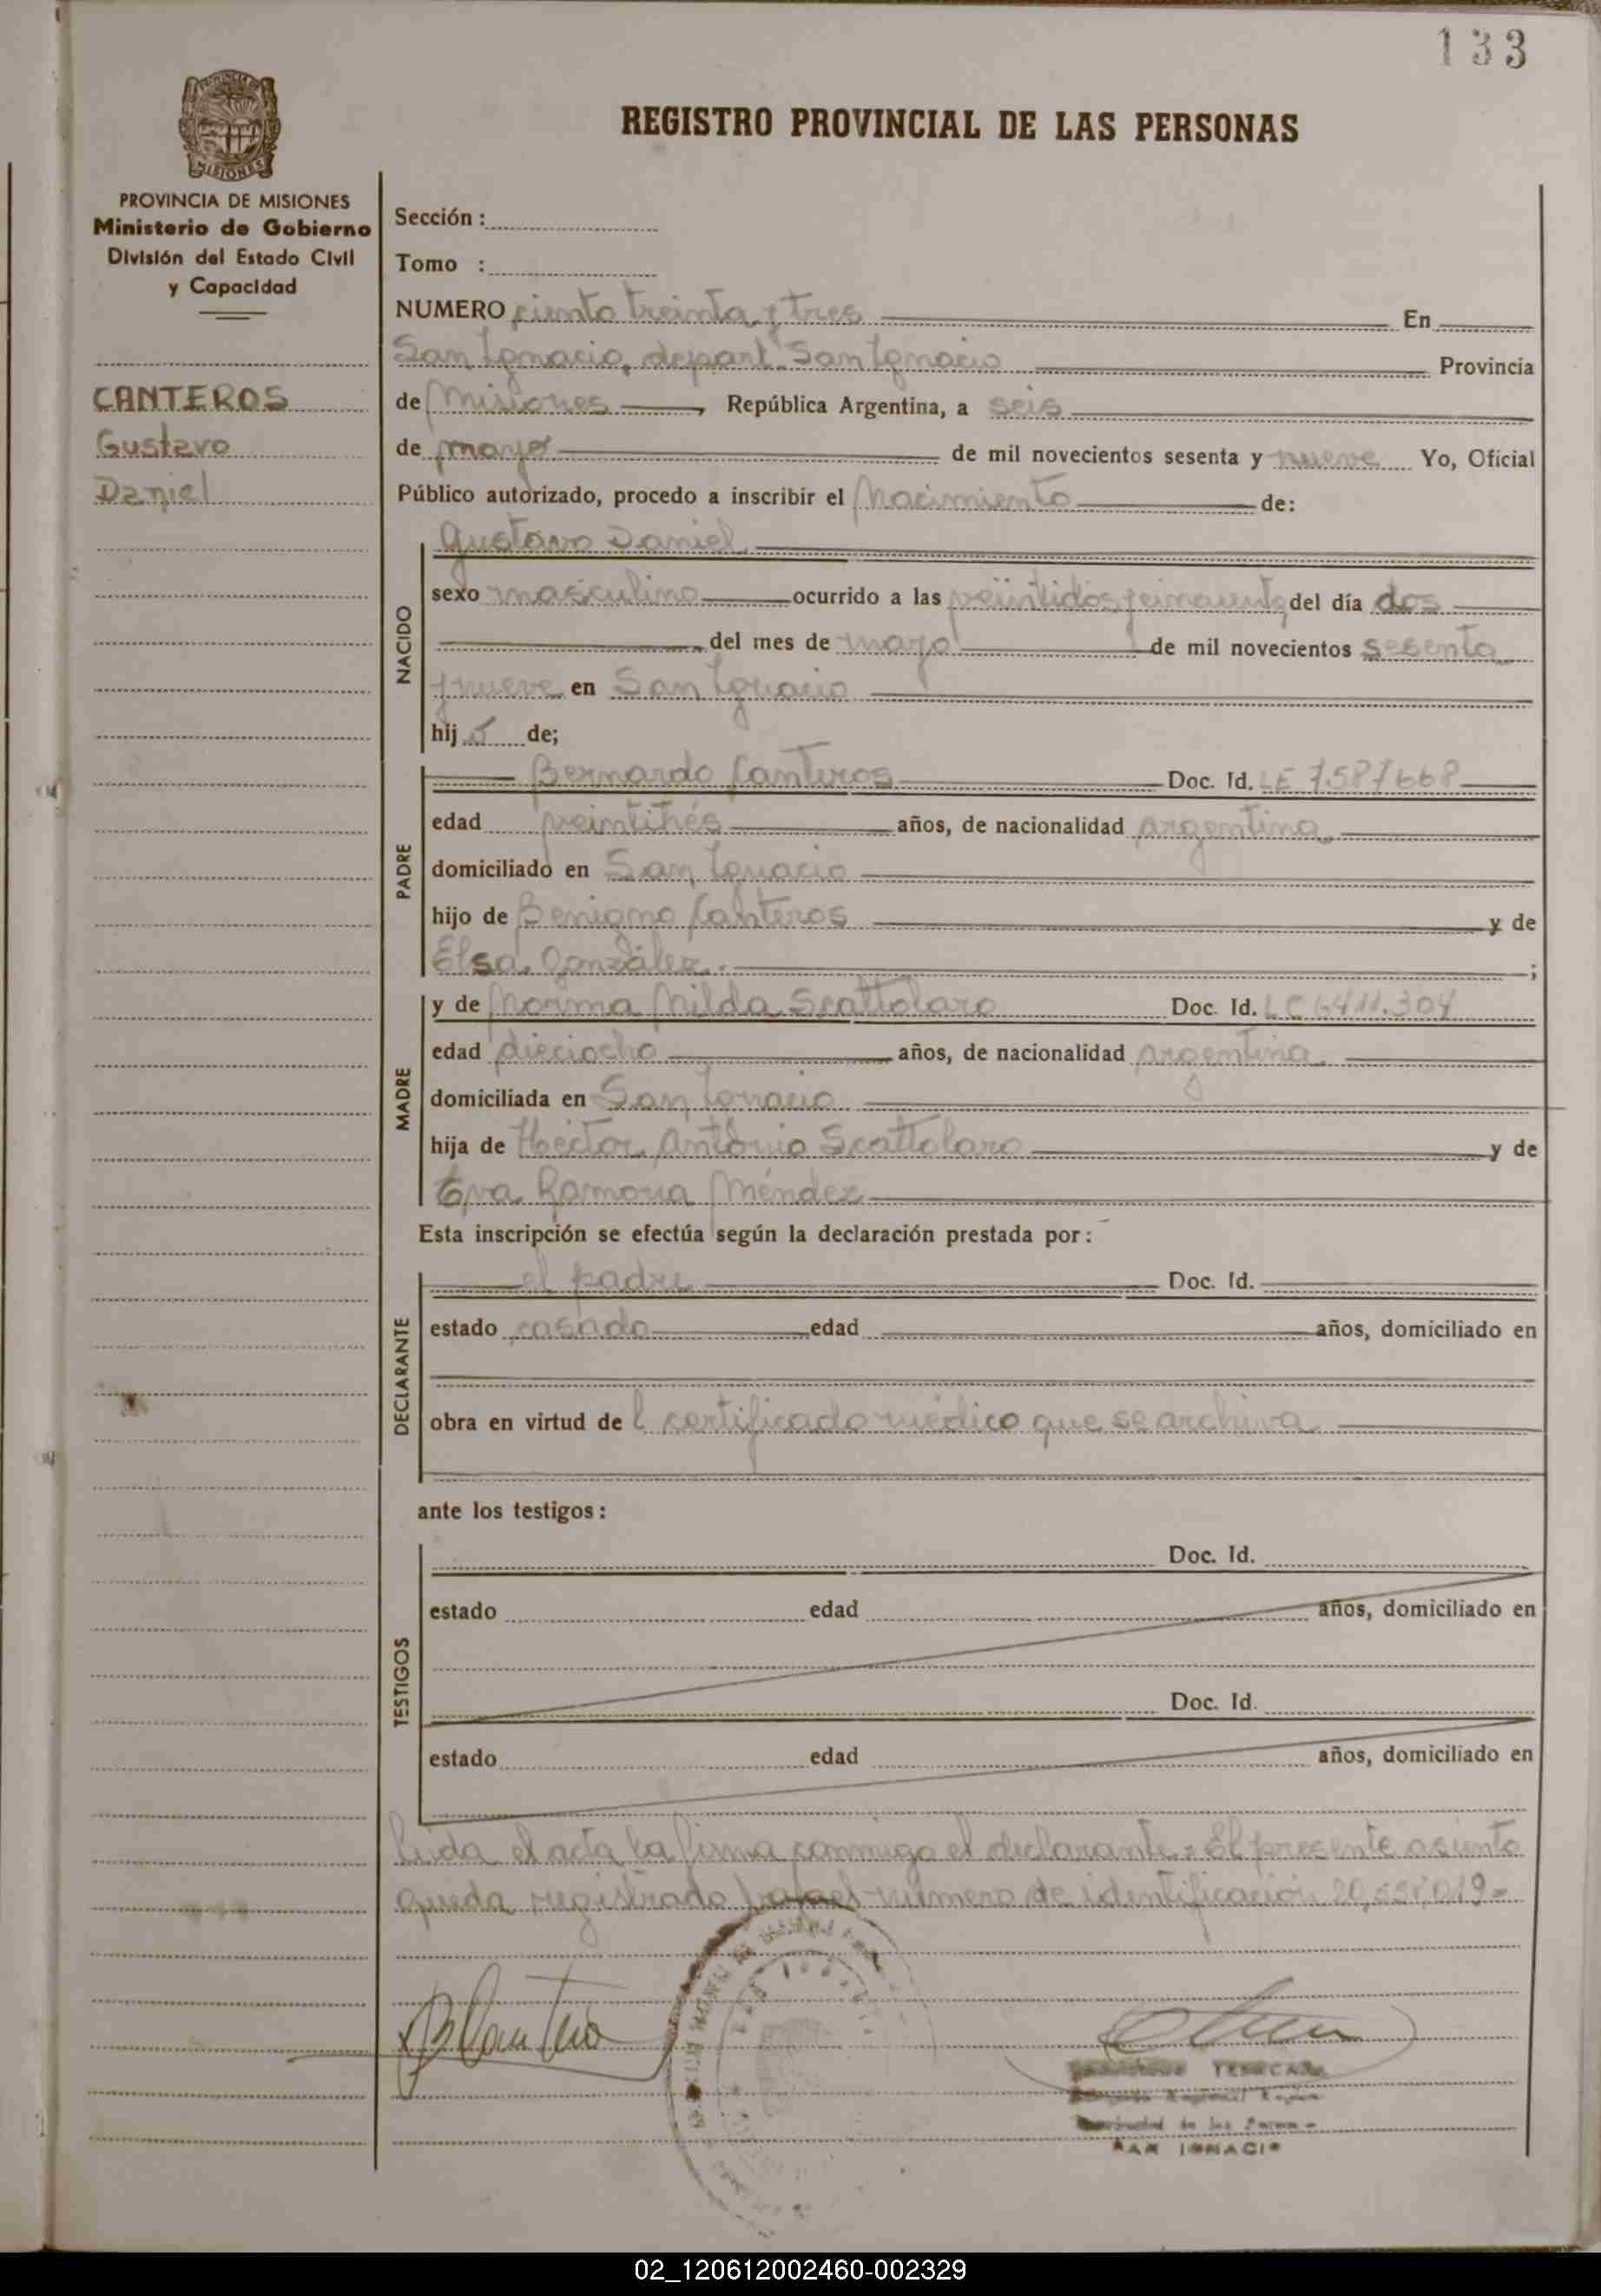 133
MISIONES
REGISTRO PROVINCIAL DE LAS PERSONAS
PROVINCIA DE MISIONES
Ministerio de Gobierno
División del Estado Civil
y Capacidad
CANTEROS
Gustavo
Daniel
Sección :
Tomo :
NUMERO ciento treinta y tres En
San Ignacio, depart. San Ignacio Provincia
de Misiones, República Argentina, a seis
de mayo de mil novecientos sesenta y nueve Yo, Oficial
Público autorizado, procedo a inscribir el Nacimiento de:
NACIDO
Gustavo Daniel
sexo masculino ocurrido a las del día dos
del mes de mayo de mil novecientos sesenta
y nueve en San Ignacio
hijo de;
PADRE
Bernardo Canteros Doc. Id. LE
edad veintitrés años, de nacionalidad argentina
domiciliado en San Ignacio
hijo de Benigno Canteros y de
Elsa González ;
MADRE
y de Norma Nilda Scattolaro Doc. Id. LC 6411.304
edad dieciocho años, de nacionalidad argentina
domiciliada en San Ignacio
hija de Héctor Antonio Scattolaro y de
Eva Ramona Méndez
Esta inscripción se efectúa según la declaración prestada por:
DECLARANTE
el padre Doc. Id.
estado casado edad años, domiciliado en
obra en virtud del certificado médico que se archiva
ante los testigos:
TESTIGOS
Doc. Id.
estado edad años, domiciliado en
Doc. Id.
estado edad años, domiciliado en
Leida el acta la firma conmigo el declarante.= El presente asiento
queda registrado bajo el número de identificación
B Canteros
SAN IGNACIO
02_120612002460-002329